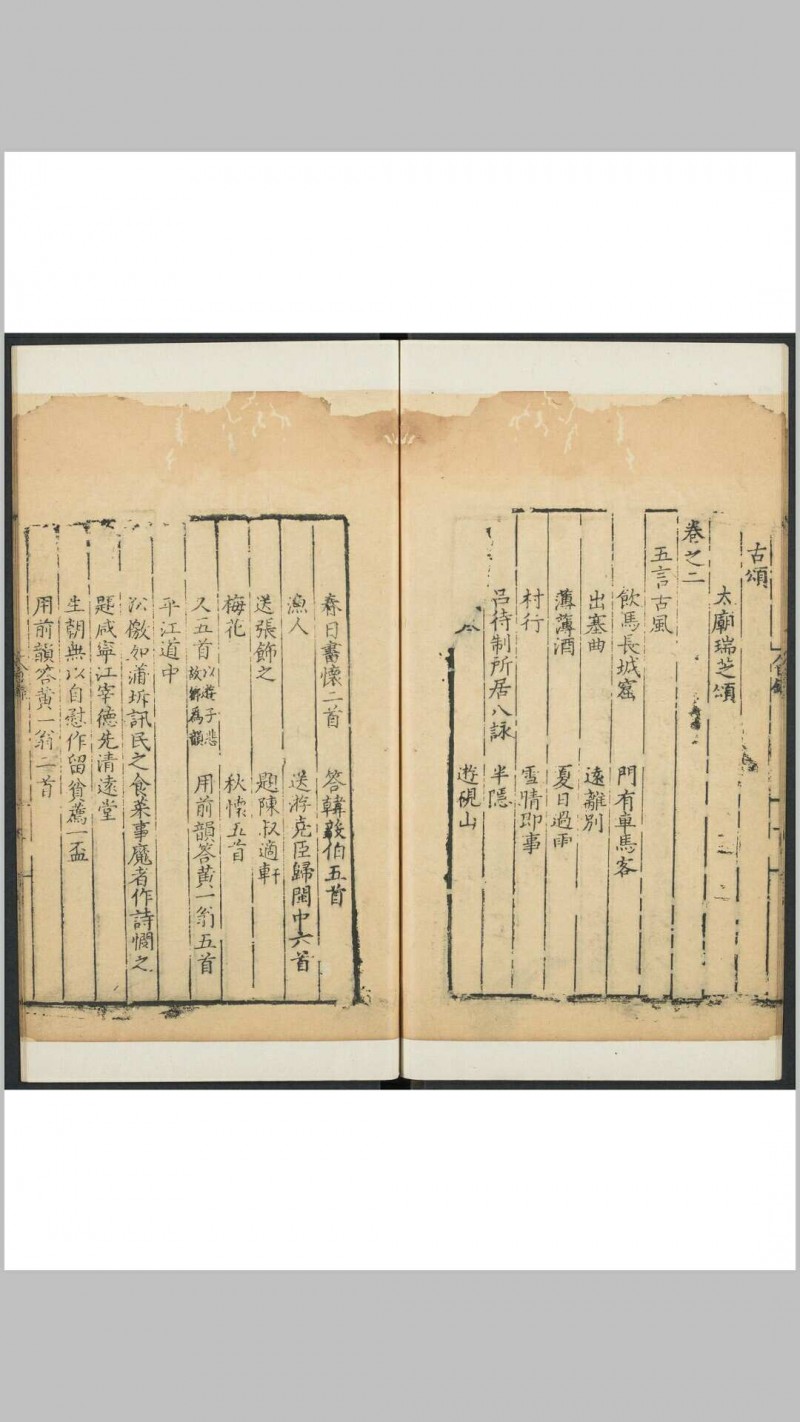 古頌
太廟瑞芝頌
卷之二
五言古風
飲馬長城窟 門有車馬客
出塞曲 遠離別
薄薄酒 夏日過雨
村行 雪晴即事
呂待制所居八詠 半隱
遊硯山
春日書懷二首 答韓毅伯五首
漁人 送游克臣歸閩中六首
送張飾之 題陳叔適軒
梅花 秋懷五首
又五首以遊子悲故鄉爲韻 用前韻答黄一翁五首
平江道中
沿檄如蒲圻訊民之食菜事魔者作詩憫之
題咸寧江宰德先清遠堂
生朝無以自慰作留貧薦一盃
用前韻答黄一翁二首